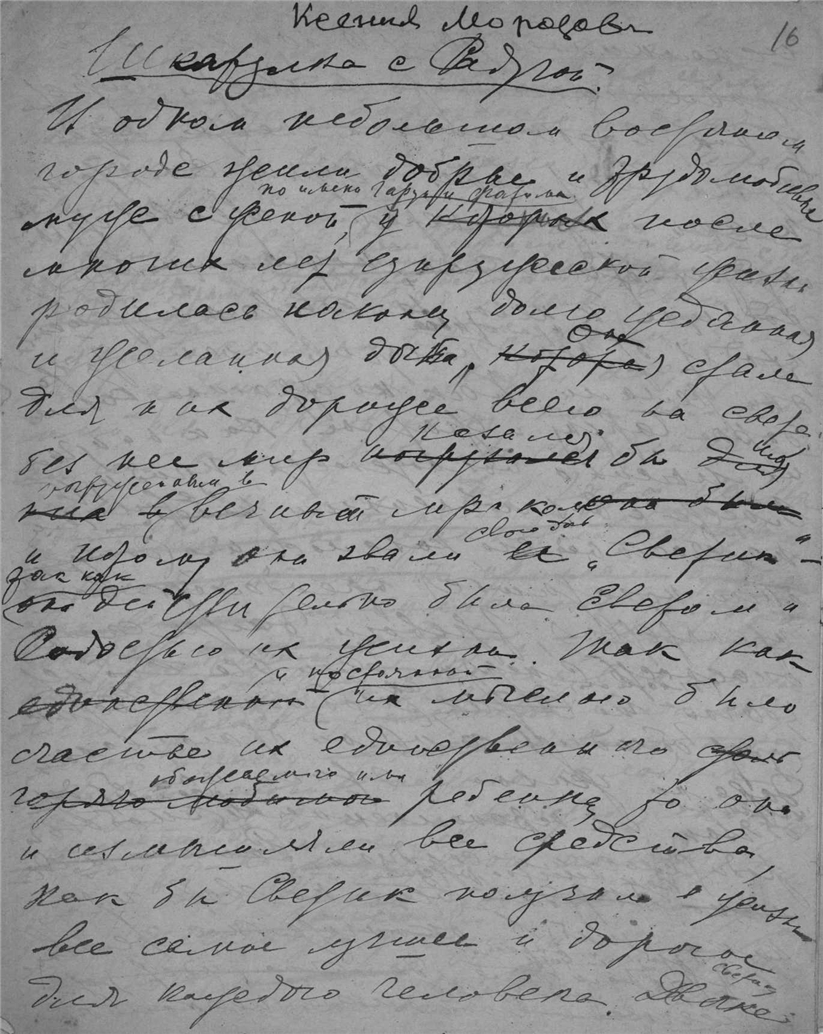 Ксения Морозова
16
Шкатулка с Радугой.
В одном небольшом восточном
городе жили добрые и трудолюбивые
по имени и Фатима
муж с женой, у которых после
многих лет супружеской жизни
родилась наконец долго жданная
и желанная дочка, которая она стала
для них дороже всего на свете
казался
без нее мир погрузился бы для
погруженным в
них в вечный мрак она была
и потому они звали ее свою дочь „Светик"–
так как
она действительно была светом и
Радостью их жизни. Так как
и постоянной
единственной их мыслью было
счастье их единственного
обожаемого ими
горячо любимого ребенка, то они
и измышляли все средства,
как бы Светик получил в жизни
все самое лучшее и дорогое
для каждого человека.